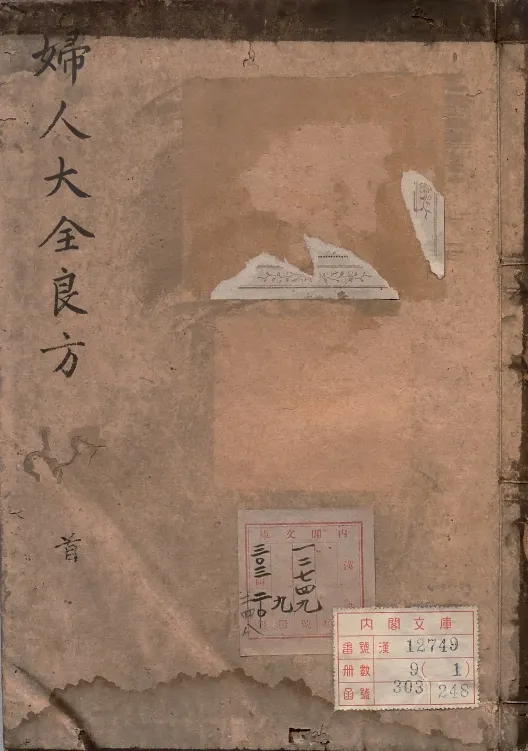 婦人大全良方
首
內閣文庫
漢
一二七四九
九
三〇三
二〇
內閣文庫
番號 漢 12749
冊數 9( 1)
函號 303 248